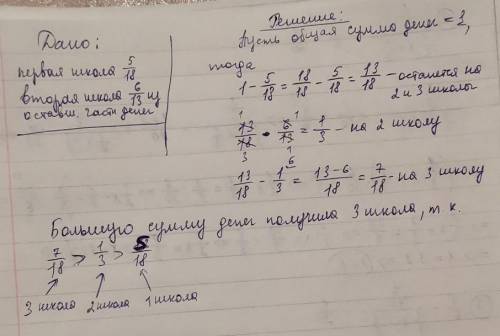 Дано:
первая школа 5/18
вторая школа 6/13 из
оставш. части денег
Решение:
Пусть общая сумма денег = 1,
тогда
1 - 5/18 = 18/18 - 5/18 = 13/18 - останется на
2 и 3 школы
13/18 · 6/13 = 1/3 - на 2 школу
13/18 - 1/3 = 13-6/18 = 7/18 - на 3 школу
Большую сумму денег получила 3 школа, т.к.
7/18 > 1/3 > 5/18
3 школа 2 школа 1 школа